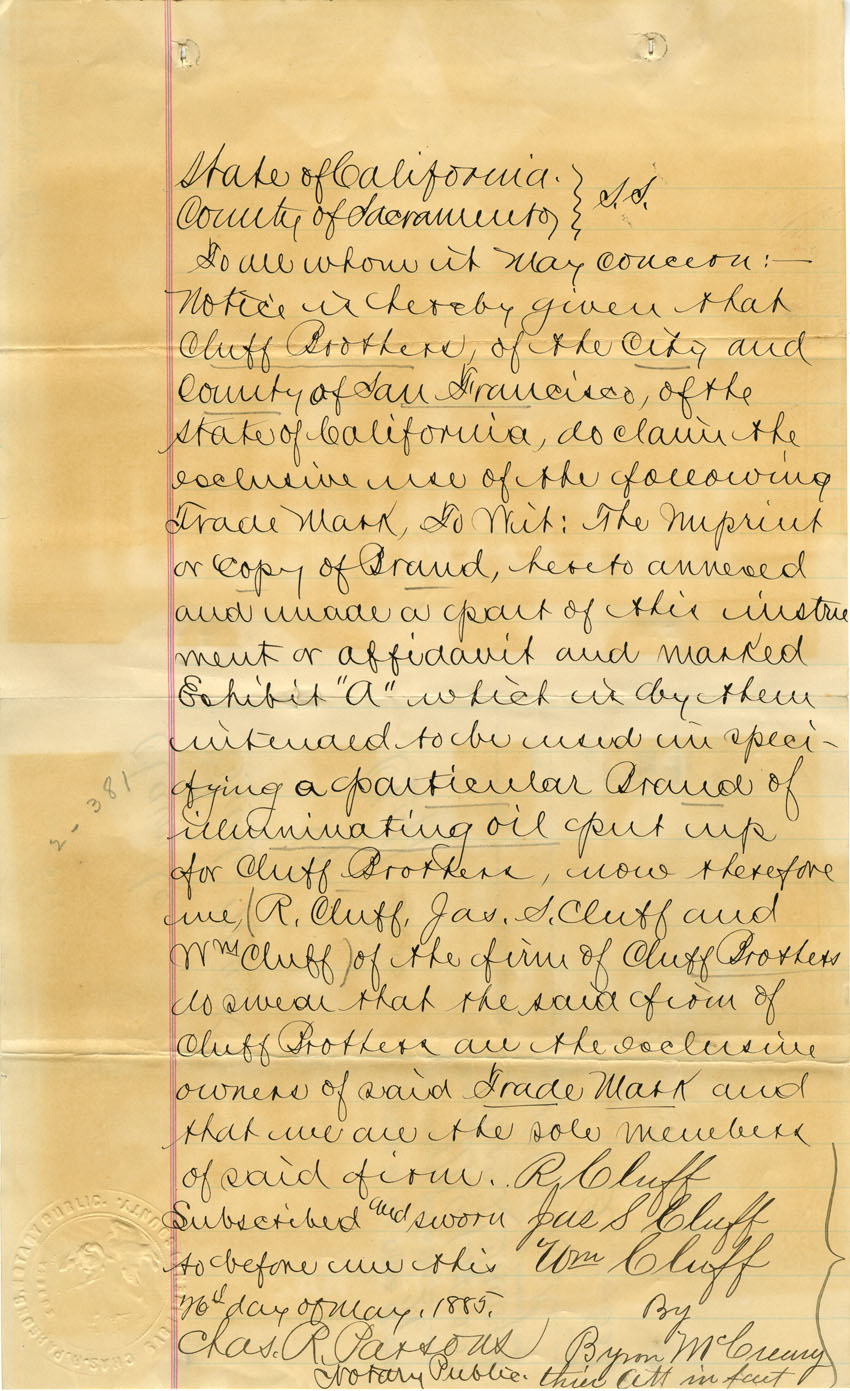 State of California. } S.S.
County of Sacramento, }
To all whom it May Concern:—
Notice is hereby given that
Cluff Brothers, of the City and
County of San Francisco, of the
State of California, do claim the
exclusive use of the following
Trade Mark, To Wit: The Imprint
or Copy of Brand, hereto annexed
and made a part of this instru
ment or affidavit and marked
Exhibit "A" which is by them
intended to be used in speci-
fying a particular Brand of
illuminating oil put up
for Cluff Brothers, now therefore
we, (R. Cluff, Jas. S. Cluff and
Wm Cluff) of the firm of Cluff Brothers
do swear that the said firm of
Cluff Brothers are the exclusive
owners of said Trade Mark and
that we are the sole members
of said firm. R. Cluff
Subscribed and sworn Jas S Cluff
to before me this Wm Cluff
day of May, 1885. By
Chas. R. Parsons Byron McCreary
Notary Public. thier Att in fact
2-381
CHAS. R. PARSONS, NOTARY PUBLIC.